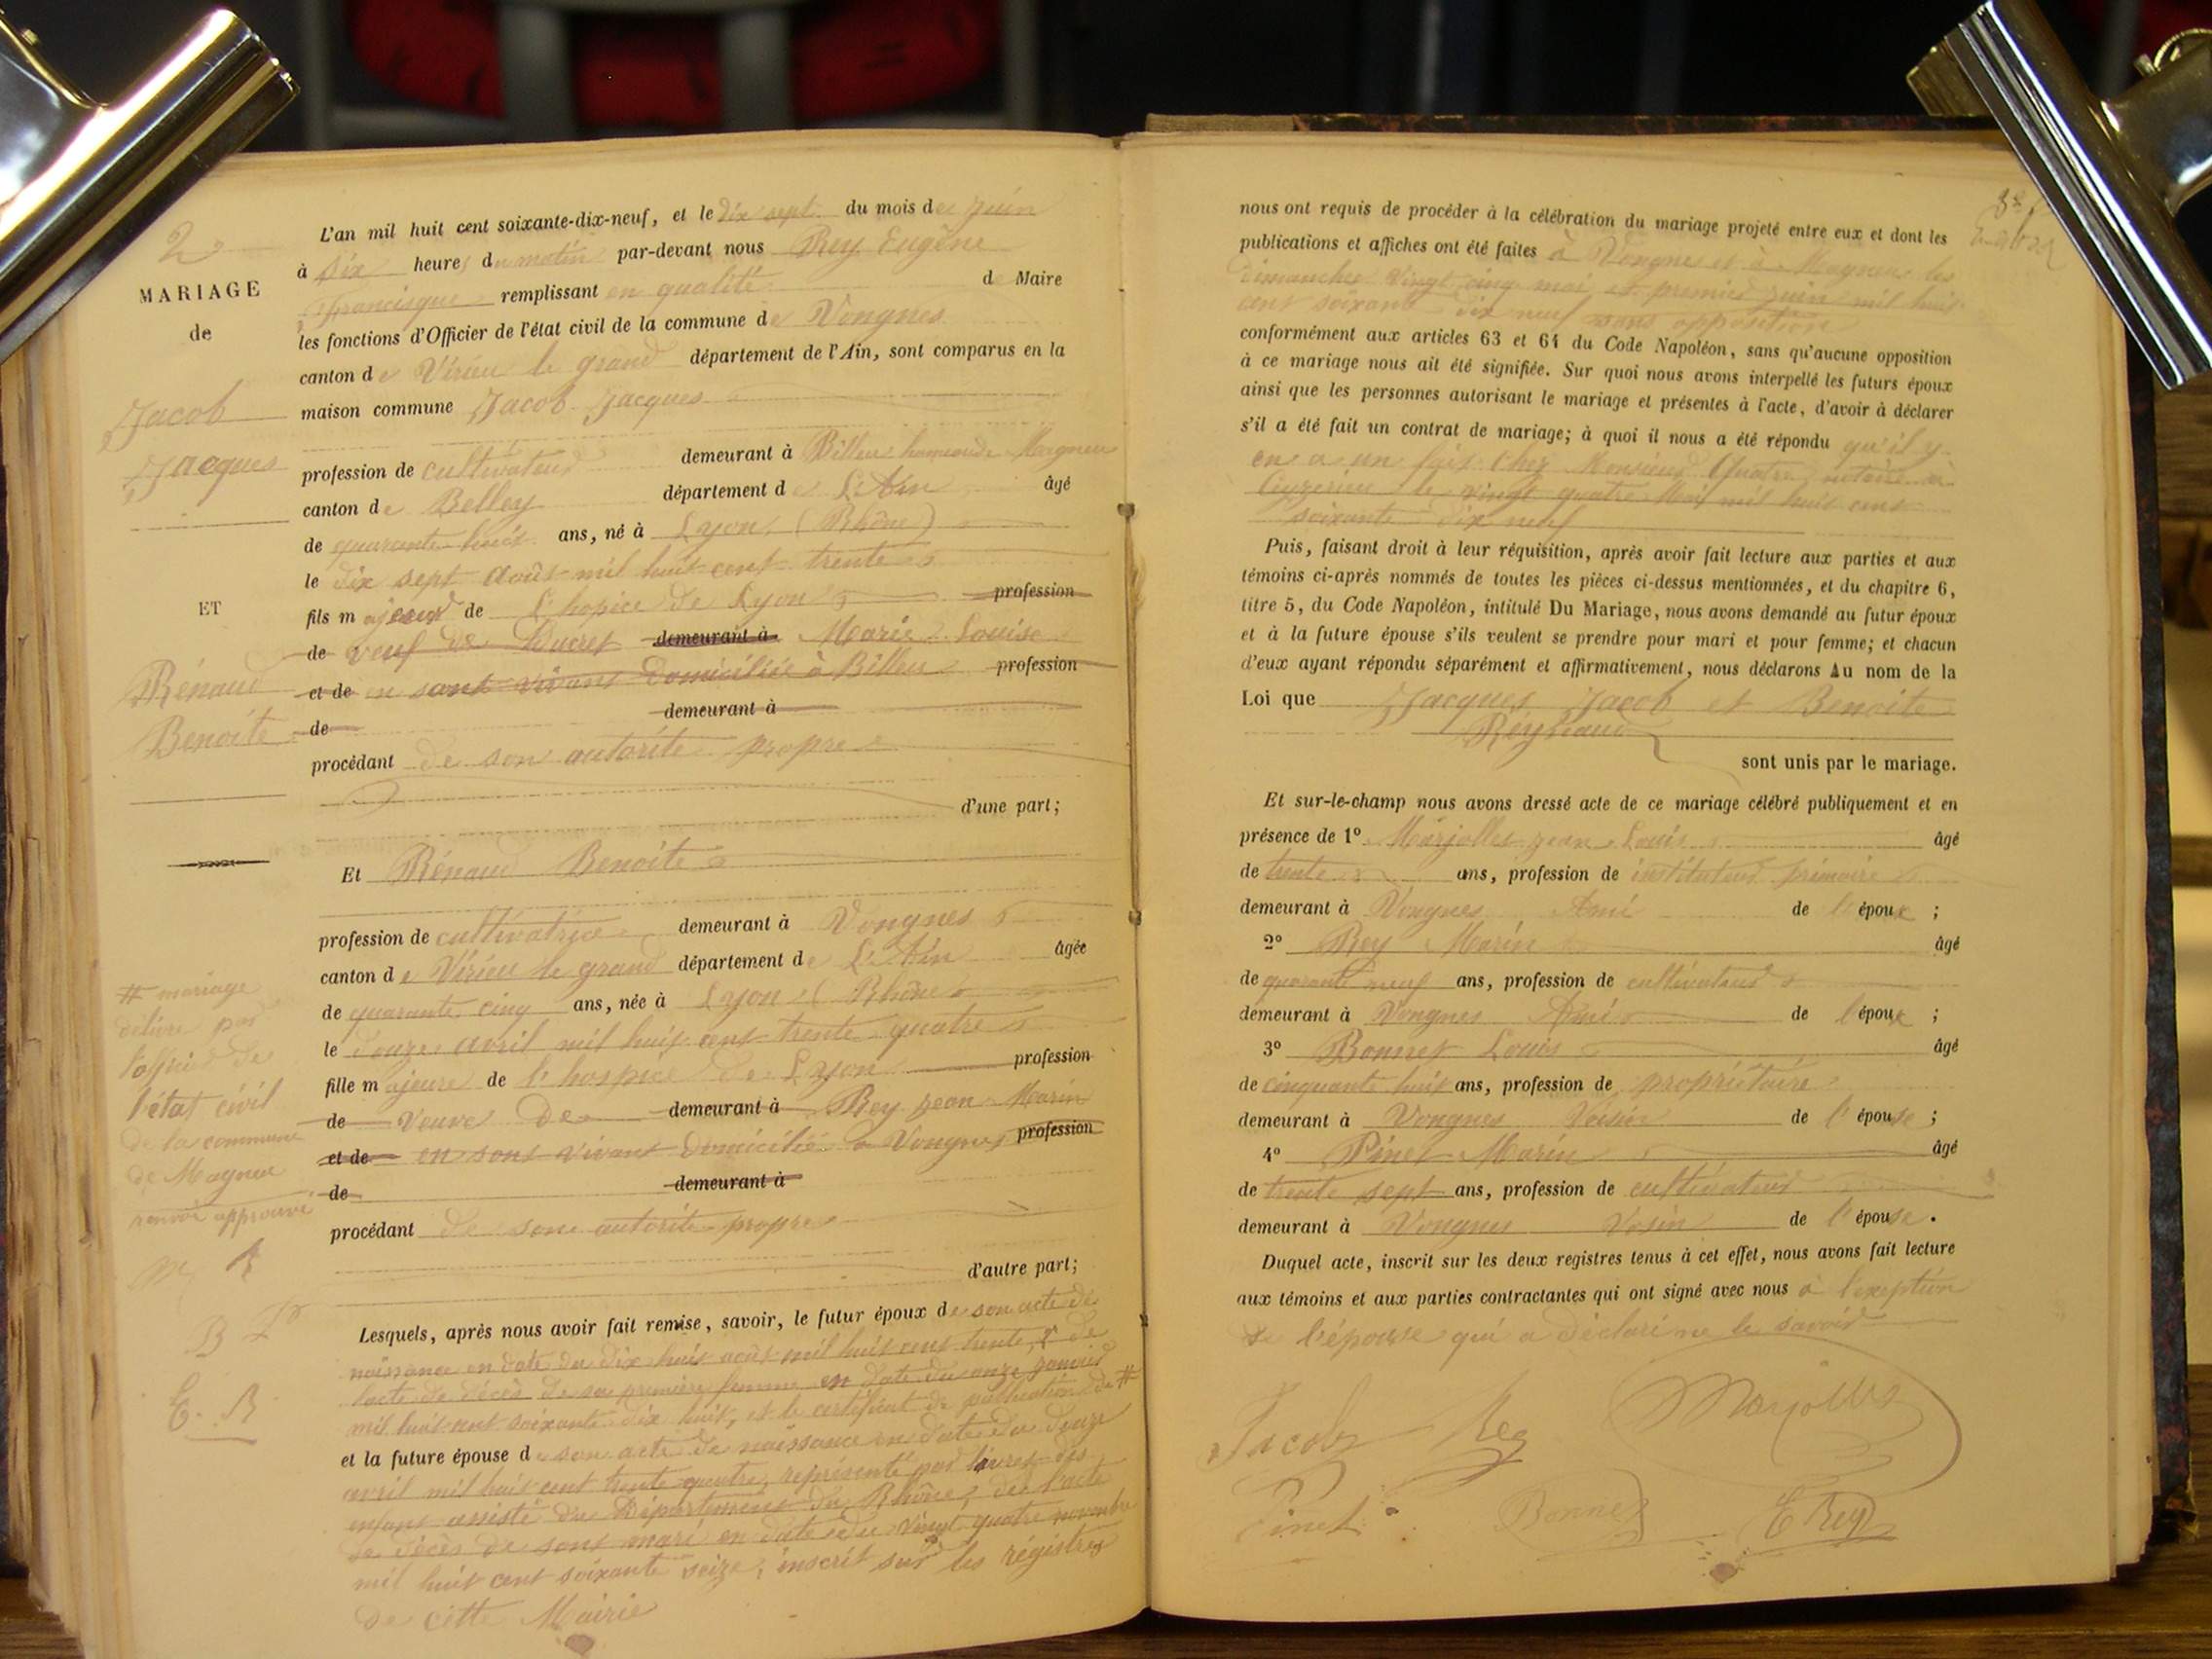 2
MARIAGE
de
Jacob
Jacques
ET
Rénaud
Benoite
# mariage
délivré par
l'officier de
l'état civil
de la commune
de Magnieu
renvoi approuvé
E. R
L'an mil huit cent soixante-dix-neuf, et le dix sept du mois de Juin
à dix heures du matin par-devant nous Rey Eugène
Francisque remplissant en qualité de Maire
les fonctions d'Officier de l'état civil de la commune de Vongnes
canton de Virieu le grand département de l'Ain, sont comparus en la
maison commune Jacob Jacques
profession de cultivateur demeurant à Billieu hameau de Magnieu
canton de Belley département de L'Ain âgé
de quarante huit ans, né à Lyon (Rhône)
le dix sept août mil huit cent trente
fils majeur de L'hospice de Lyon profession
de veuf de Ducret demeurant à Marie Louise
et de en sont vivant domiciliée à Billieu profession
de demeurant à
procédant de son autorité propre
d'une part;
Et Rénaud Benoite
profession de cultivatrice demeurant à Vongnes
canton de Virieu le grand département de L'Ain âgée
de quarante cinq ans, née à Lyon (Rhône
le douze avril mil huit cent trente quatre
fille majeure de l'hospice de Lyon profession
de Veuve de demeurant à Rey jean Marin
et de en sont vivant domicilié à Vongnes profession
de demeurant à
procédant de sone autorité propre
d'autre part;
Lesquels, après nous avoir fait remise, savoir, le futur époux de son acte de
naissance en date du dix huit août mil huit cent trente, & de
l'acte de décès de sa première femme en date du onze janvier
mil huit cent soixante dix huit, et le certificat de publication de #
et la future épouse de son acte de naissance en date du douze
avril mil huit cent trente quatre, représenté par livret des
enfant assisté du Département du Rhône, de l'acte
de décès de sont mari en date du vingt quatre novembre
mil huit cent soixante seize, inscrit sur les régistres
de cette Mairie
nous ont requis de procéder à la célébration du mariage projeté entre eux et dont les
publications et affiches ont été faites à Vongnes et à Magnieu les
dimanches vingt cinq mai et premier juin mil huit
cent soixante dix neuf sans opposition
conformément aux articles 63 et 64 du Code Napoléon, sans qu'aucune opposition
à ce mariage nous ait été signifiée. Sur quoi nous avons interpellé les futurs époux
ainsi que les personnes autorisant le mariage et présentes à l'acte, d'avoir à déclarer
s'il a été fait un contrat de mariage; à quoi il nous a été répondu qu'il y
en a un fait chez Monsieur notaire à
Ceyzerieu le vingt quatre Mai mil huit cent
soixante dix neuf
Puis, faisant droit à leur réquisition, après avoir fait lecture aux parties et aux
témoins ci-après nommés de toutes les pièces ci-dessus mentionnées, et du chapitre 6,
titre 5, du Code Napoléon, intitulé Du Mariage, nous avons demandé au futur époux
et à la future épouse s'ils veulent se prendre pour mari et pour femme; et chacun
d'eux ayant répondu séparément et affirmativement, nous déclarons Au nom de la
Loi que Jacques Jacob et Benoite
Reynaud
sont unis par le mariage.
Et sur-le-champ nous avons dressé acte de ce mariage célébré publiquement et en
présence de 1º Marjolles jean Louis âgé
de trente ans, profession de instituteur primaire
demeurant à Vongnes Ami de l'époux ;
2º Rey Marin âgé
de quarante neuf ans, profession de cultivateur
demeurant à Vongnes Ami de l'époux ;
3º Bonnet Louis âgé
de cinquante huit ans, profession de propriétaire
demeurant à Vongnes Voisin de l'épouse ;
4º Pinet Marin âgé
de trente sept ans, profession de cultivateur
demeurant à Vongnes Vosin de l'épouse.
Duquel acte, inscrit sur les deux registres tenus à cet effet, nous avons fait lecture
aux témoins et aux parties contractantes qui ont signé avec nous à l'exeption
de l'épouse qui a déclaré ne le savoir
Jacob Rey Marjolles
Pinet Bonnet E Rey